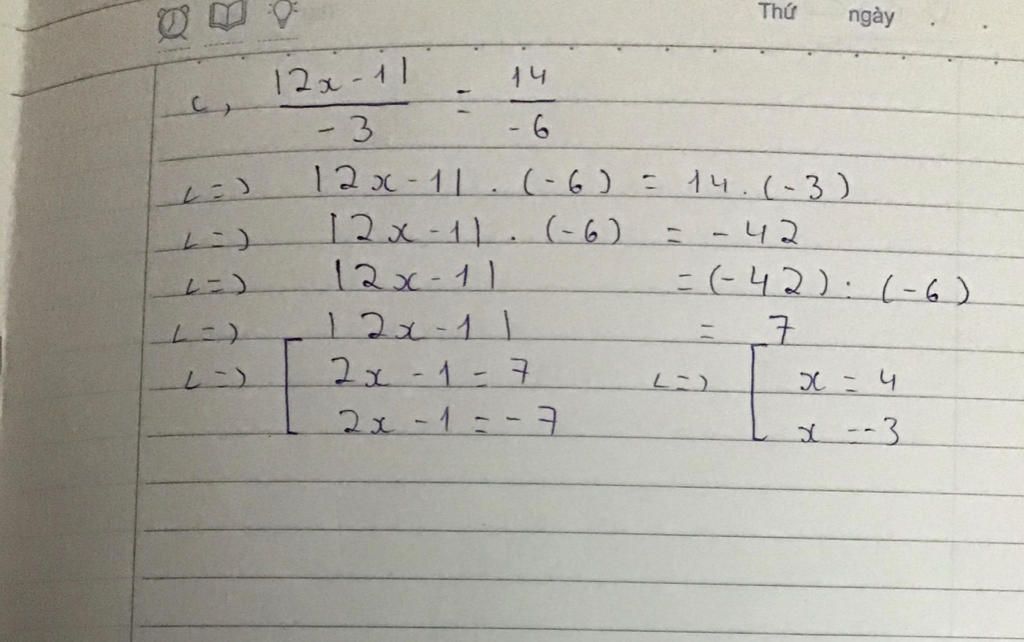 Thứ ngày . .
c, |2x - 1| / -3 = 14 / -6
<=> |2x - 1| . (-6) = 14 . (-3)
<=> |2x - 1| . (-6) = - 42
<=> |2x - 1| = (- 42) : (-6)
<=> |2x - 1| = 7
<=> [ 2x - 1 = 7 <=> [ x = 4
2x - 1 = - 7 x = -3